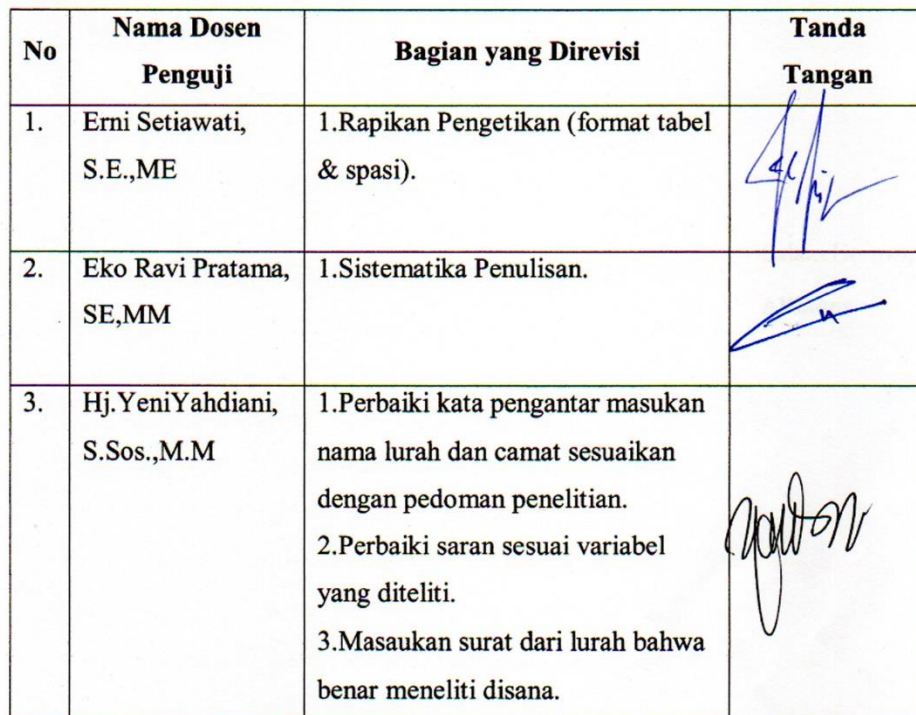 No Nama Dosen Penguji Bagian yang Direvisi Tanda Tangan
1. Erni Setiawati, 1.Rapikan Pengetikan (format tabel
S.E.,ME & spasi).
2. Eko Ravi Pratama, 1.Sistematika Penulisan.
SE,MM
3. Hj.YeniYahdiani, 1.Perbaiki kata pengantar masukan
S.Sos.,M.M nama lurah dan camat sesuaikan
dengan pedoman penelitian.
2.Perbaiki saran sesuai variabel
yang diteliti.
3.Masaukan surat dari lurah bahwa
benar meneliti disana.